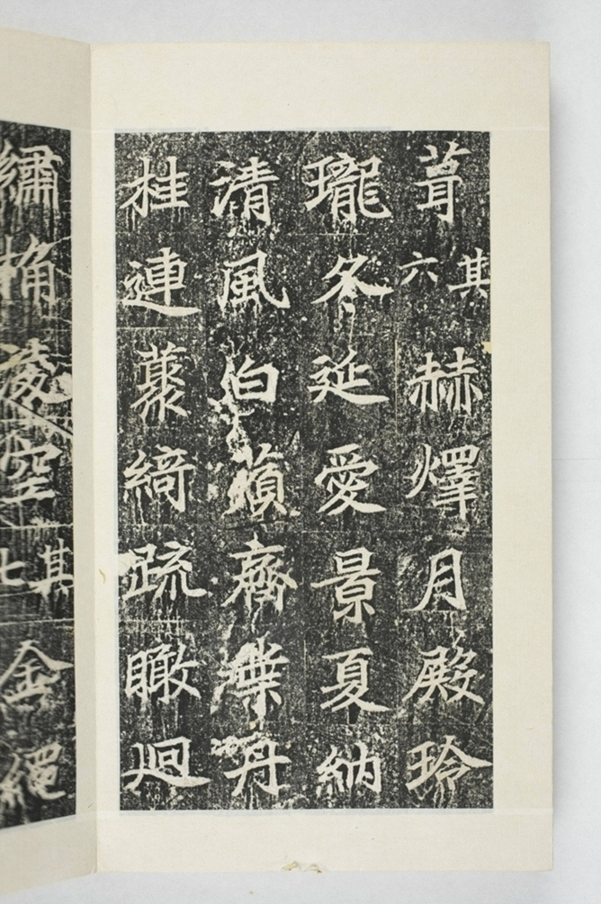 葺其六赫燡月殿玲
瓏冬延愛景夏納
清風白蘋齊葉丹
桂連藂綺疏瞰迥
繡桷淩空其七金繩